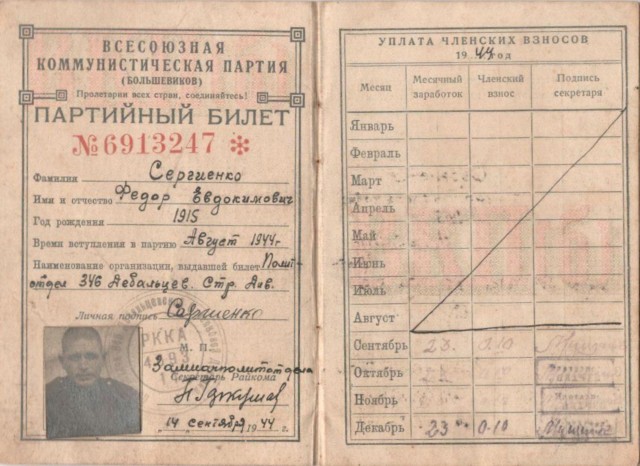 ВСЕСОЮЗНАЯ
КОММУНИСТИЧЕСКАЯ ПАРТИЯ
(БОЛЬШЕВИКОВ)
Пролетарии всех стран, соединяйтесь!
ПАРТИЙНЫЙ БИЛЕТ
№ 6913247 *
Фамилия Сергиенко
Имя и отчество Федор Евдокимович
Год рождения 1915
Время вступления в партию Август 1944г
Наименование организации, выдавшей билет Полит
отдел 346 Дебальцев. Стр. Див.
Личная подпись Сергиенко
РККА
М. П.
Замначполитотдела
Секретарь Райкома
14 сентября 1944 г.
УПЛАТА ЧЛЕНСКИХ ВЗНОСОВ
1944 год
Месяц Месячный заработок Членский взнос Подпись секретаря
Январь
Февраль
Март
Апрель
Май
Июнь
Июль
Август
Сентябрь 23. 0.10
Октябрь
Ноябрь
Декабрь 23 0.10